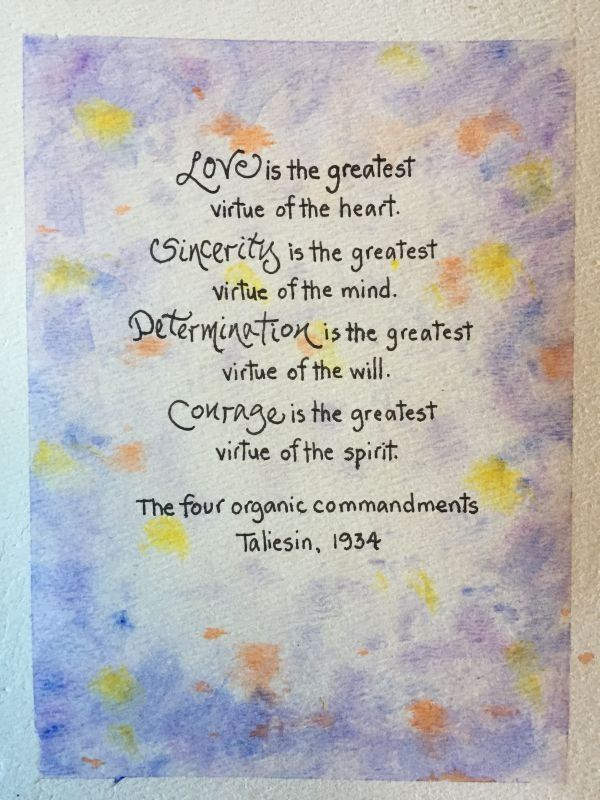 Love is the greatest
virtue of the heart.
Sincerity is the greatest
virtue of the mind.
Determination is the greatest
virtue of the will.
Courage is the greatest
virtue of the spirit.
The four organic commandments
Taliesin, 1934